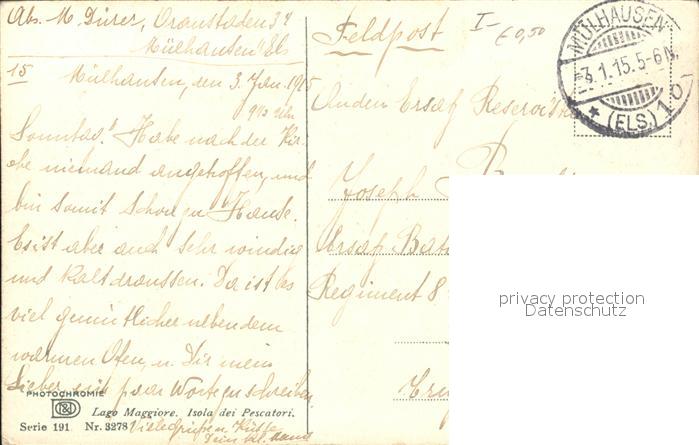 Abs. M. Dürer, Oranstaden 34
Mülhausen Els
15 Mülhausen, den 3. Jan. 1915
9½ Uhr
Sonntag! Habe nach der Kir-
che niemand angetroffen, und
bin somit schon zu Hause.
Es ist aber auch sehr windig
und kalt draussen. Da ist es
viel gemütlicher neben dem
warmen Ofen, u. Dir mein
Lieber ein paar Worte zu schreiben
Viele Grüsse u. Küsse
Dein
PHOTOCHROMIE
Lago Maggiore. Isola dei Pescatori.
Serie 191 Nr. 3278
Feldpost
I-
€0,50
MÜLHAUSEN
3.1.15.5-6N.
* (ELS.) 1 o
An den Ersatz Reservisten
Joseph
Ersatz Bat
Regiment 8
privacy protection
Datenschutz